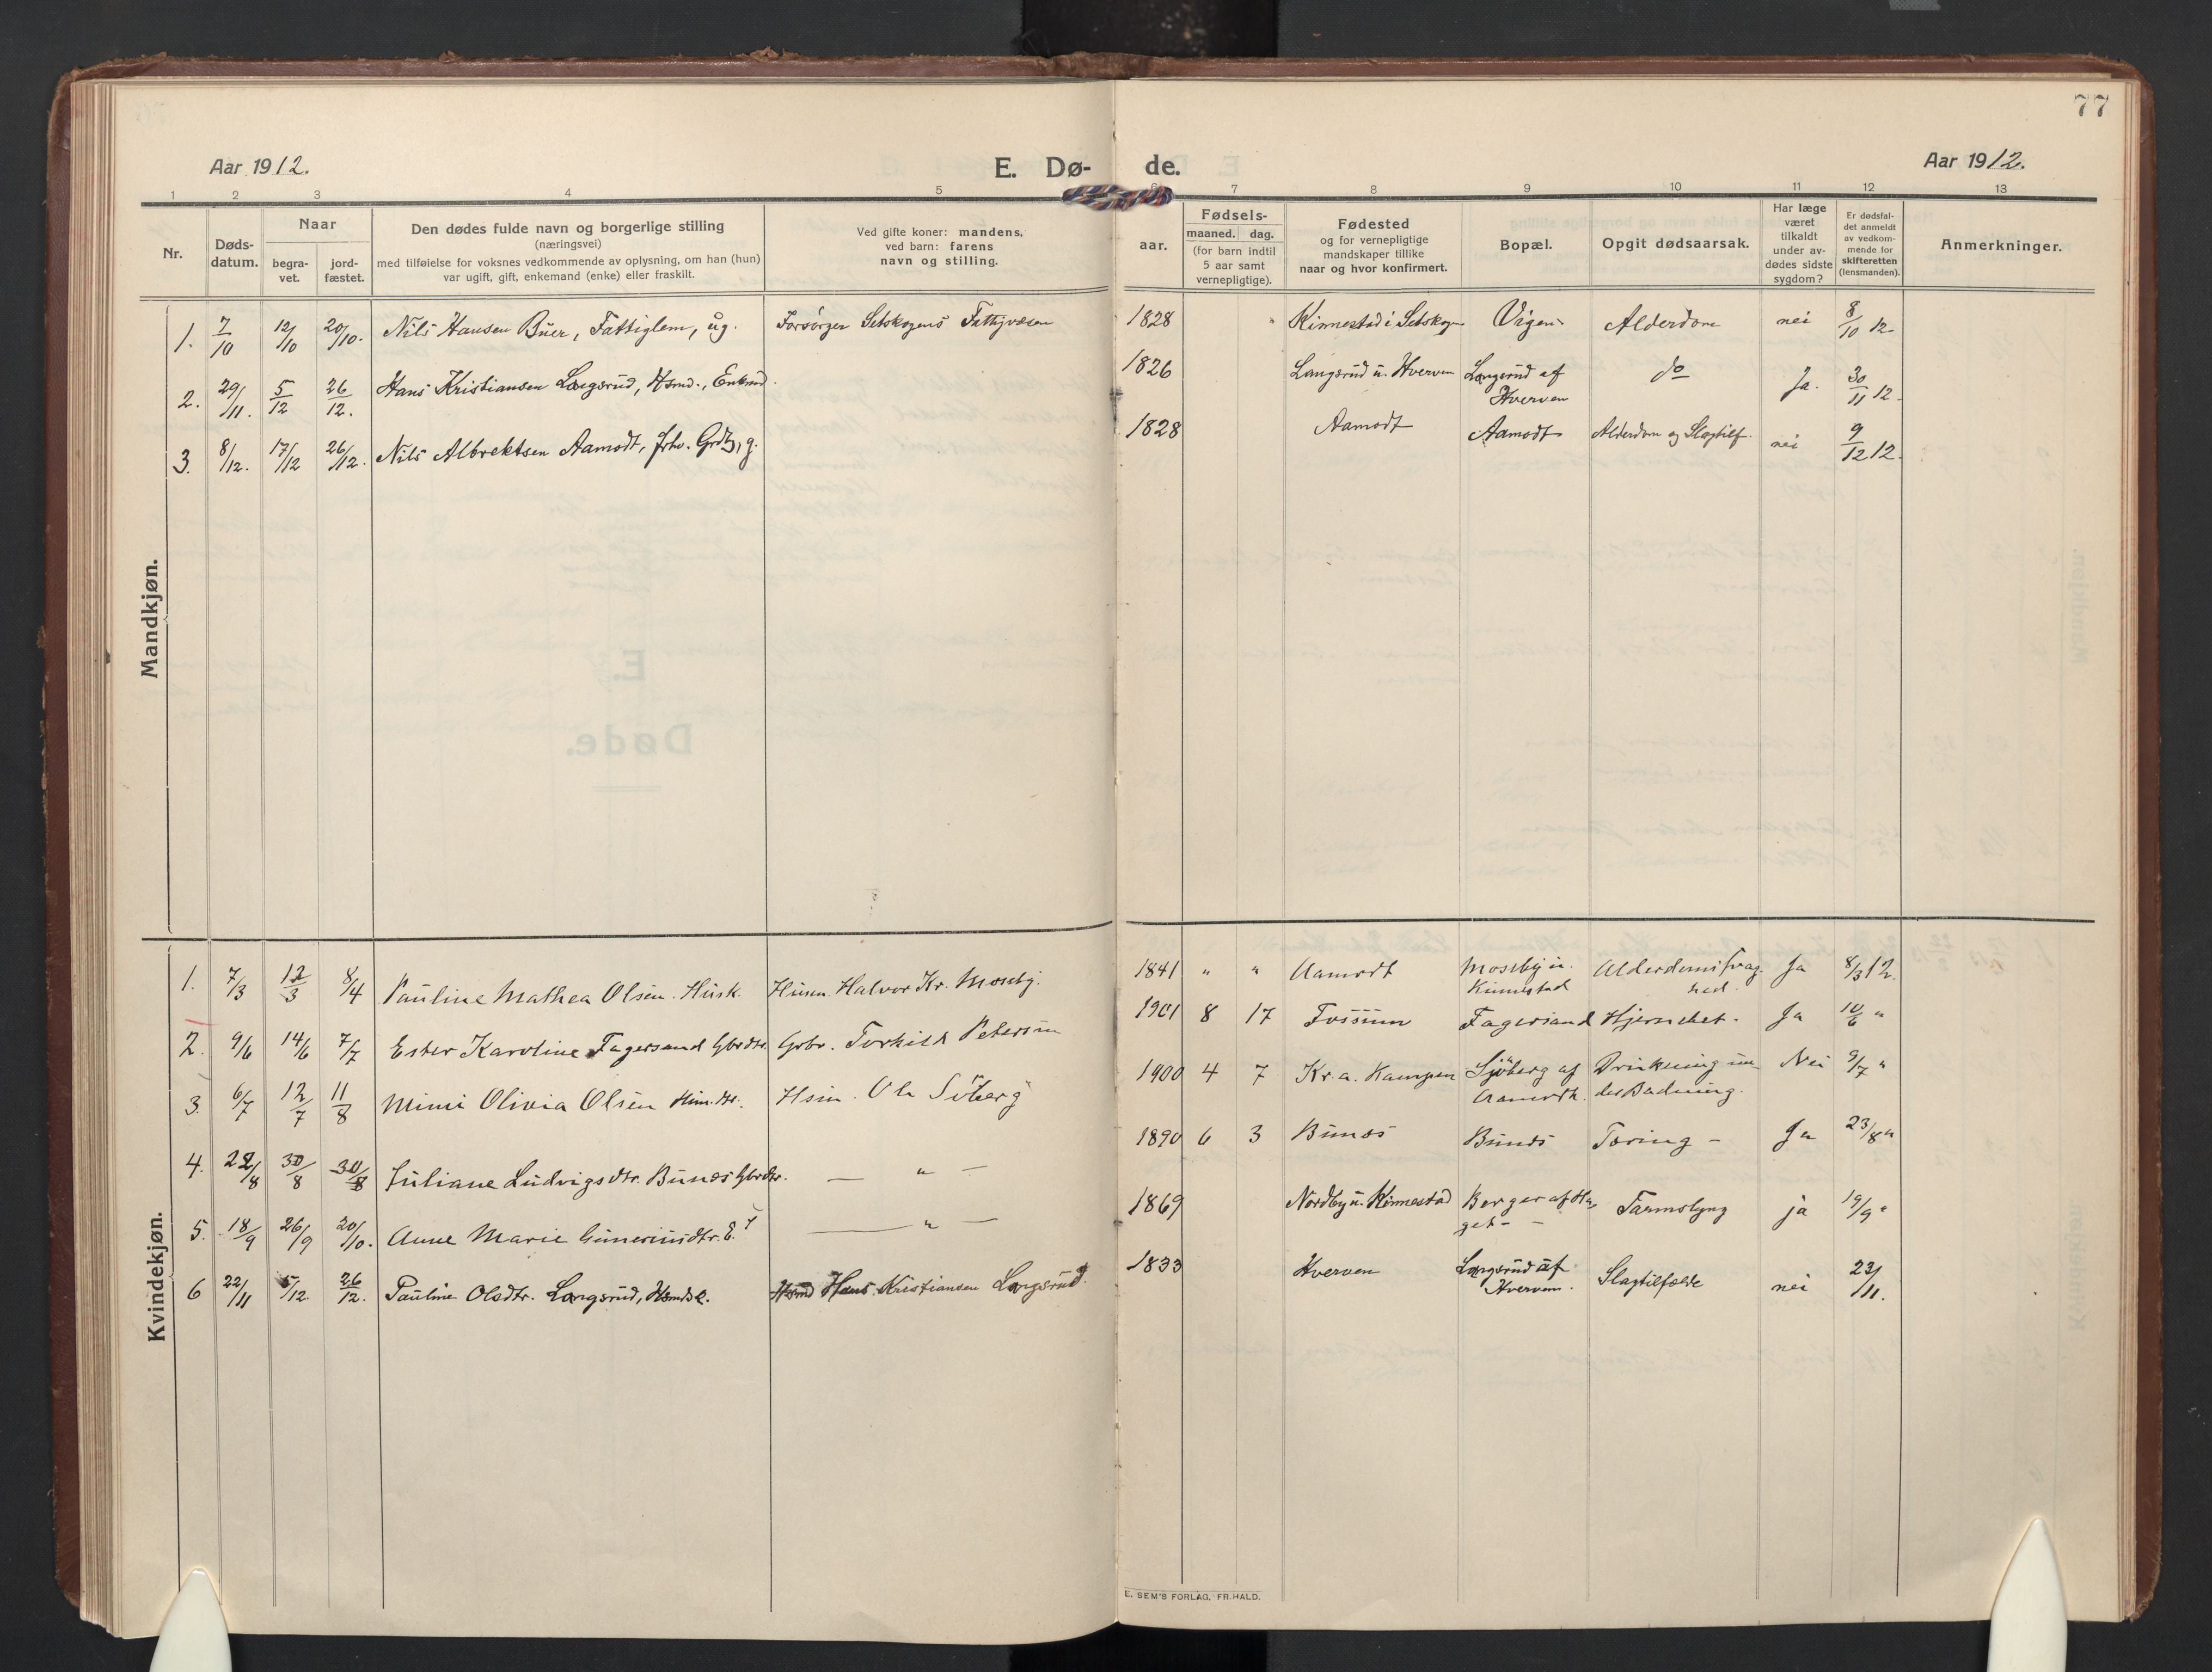 77
Aar 1912.
E. Dø-
de.
Aar 1912.
1 2 3 4 5 6 7 8 9 10 11 12 13
Nr.
Døds-
datum.
Naar
begra-
vet.
jord-
fæstet.
Den dødes fulde navn og borgerlige stilling
(næringsvei)
med tilføielse for voksnes vedkommende av oplysning, om han (hun)
var ugift, gift, enkemand (enke) eller fraskilt.
Ved gifte koner: mandens,
ved barn: farens
navn og stilling.
Fødsels-
aar.
maaned. dag.
(for barn indtil
5 aar samt
vernepligtige).
Fødested
og for vernepligtige
mandskaper tillike
naar og hvor konfirmert.
Bopæl.
Opgit dødsaarsak.
Har læge
været
tilkaldt
under av-
dødes sidste
sygdom?
Er dødsfal-
det anmeldt
av vedkom-
mende for
skifteretten
(lensmanden).
Anmerkninger.
Mandkjøn.
1. 7/10 12/10 20/10. Nils Hansen Buer, Fattiglem, ug. Forsørger Setskogens Fattigvæsen 1828 " Kinnestad i Setskogn Vigen Alderdom nei 8/10 12
2. 29/11. 5/12 26/12. Hans Kristiansen Langsrud, Hsmd., Enkmd. 1826 Langsrud u. Hverven Langsrud af do Ja. 30/11 12.
Hverven
3. 8/12. 17/12 26/12. Nils Albrektsen Aamodt, fhv. Grdbr, g. 1828 Aamodt Aamodt Alderdom og Slagtilf. nei 9/12 12.
Kvindekjøn.
1. 7/3 12/3 8/4 Pauline Mathea Olsen. Husk. Husm. Halvor Kr. Moseby. 1841 " " Aamodt Moseby u. Alderdomssvag- Ja 8/3 12.
Kinnestad hed.
2. 9/6 14/6 7/7 Ester Karoline Fagersand Gbrdtr. Grbr. Torkild Petersen 1901 8 17 Fossum Fagersand Hjernebet. Ja 10/6 "
3. 6/7 12/7 11/8 Mimi Olivia Olsen Hsm.dtr. Hsm. Ole Söberg 1900 4 7 Kr.a. Kampen Sjöberg af Drukning un- Nei 9/7 "
Aamodt. der Badning.
4. 22/8 30/8 30/8 Juliane Ludvigsdtr. Bunæs Gbrdtr. — " — 1890 6 3 Bunæs Bunæs Tæring - Ja 23/8 "
5. 18/9 26/9 20/10. Anne Marie Guneriusdtr. E. — " — 1869 Nordby u. Kinnestad Berger af Ha- Tarmslyng ja 19/9 "
get - -
6 22/11 5/12. 26/12. Pauline Olsdtr. Langsrud, Hsmdse. Hsmd Hans Kristiansen Langsrud. 1833 Hverven Langsrud af Slagtilfælde nei 23/11.
Hverven.
E. SEM'S FORLAG, FR. HALD.